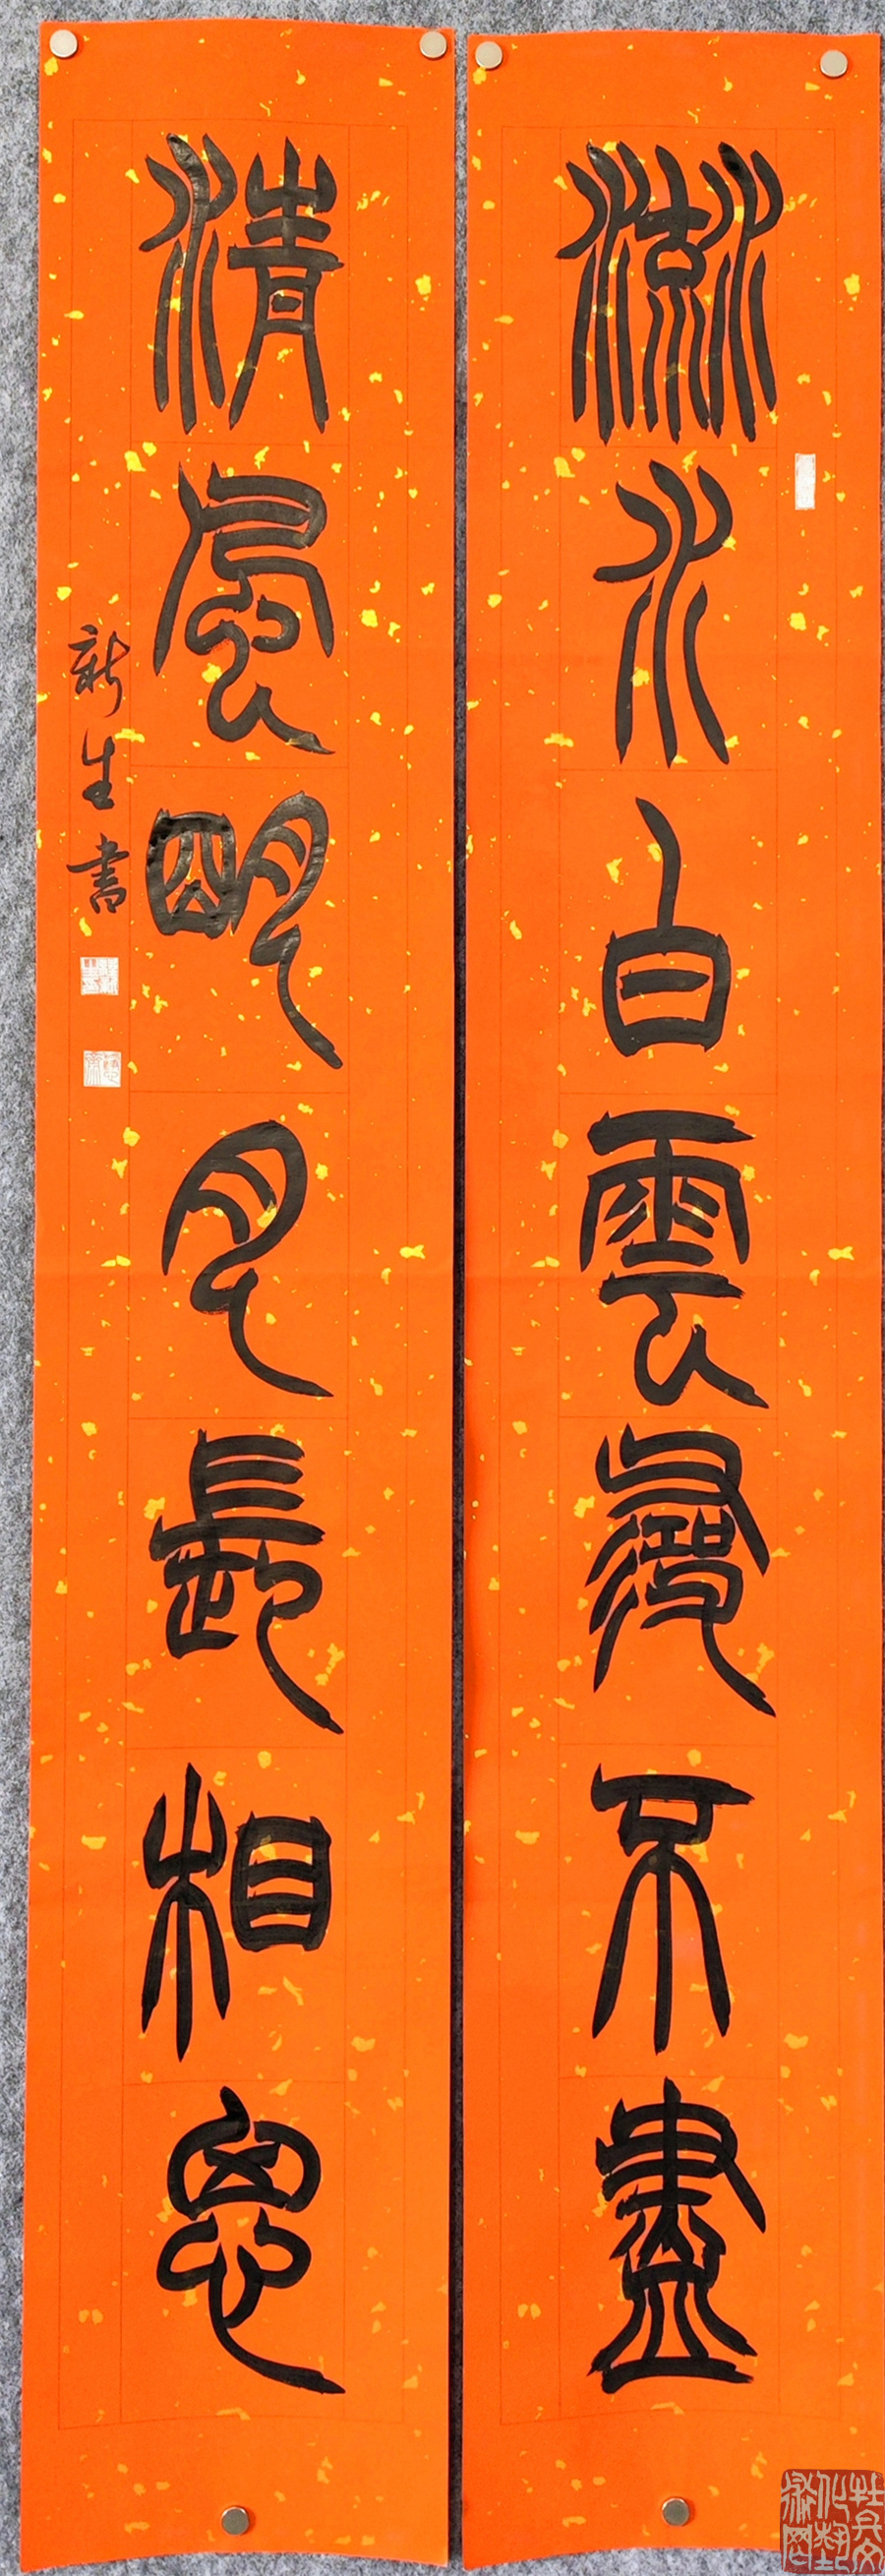 流水白雲尋不盡
清風明月長相思
新生書